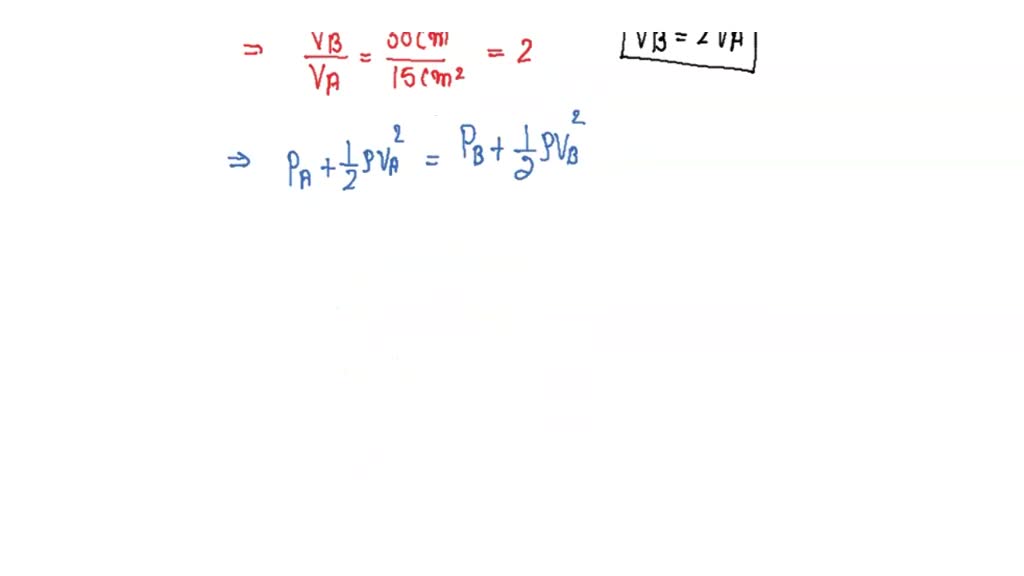 ⇒ VB/VA = 30cm/15cm² = 2    VB = 2VA
⇒ PA + 1/2 ρVA² = PB + 1/2 ρVB²